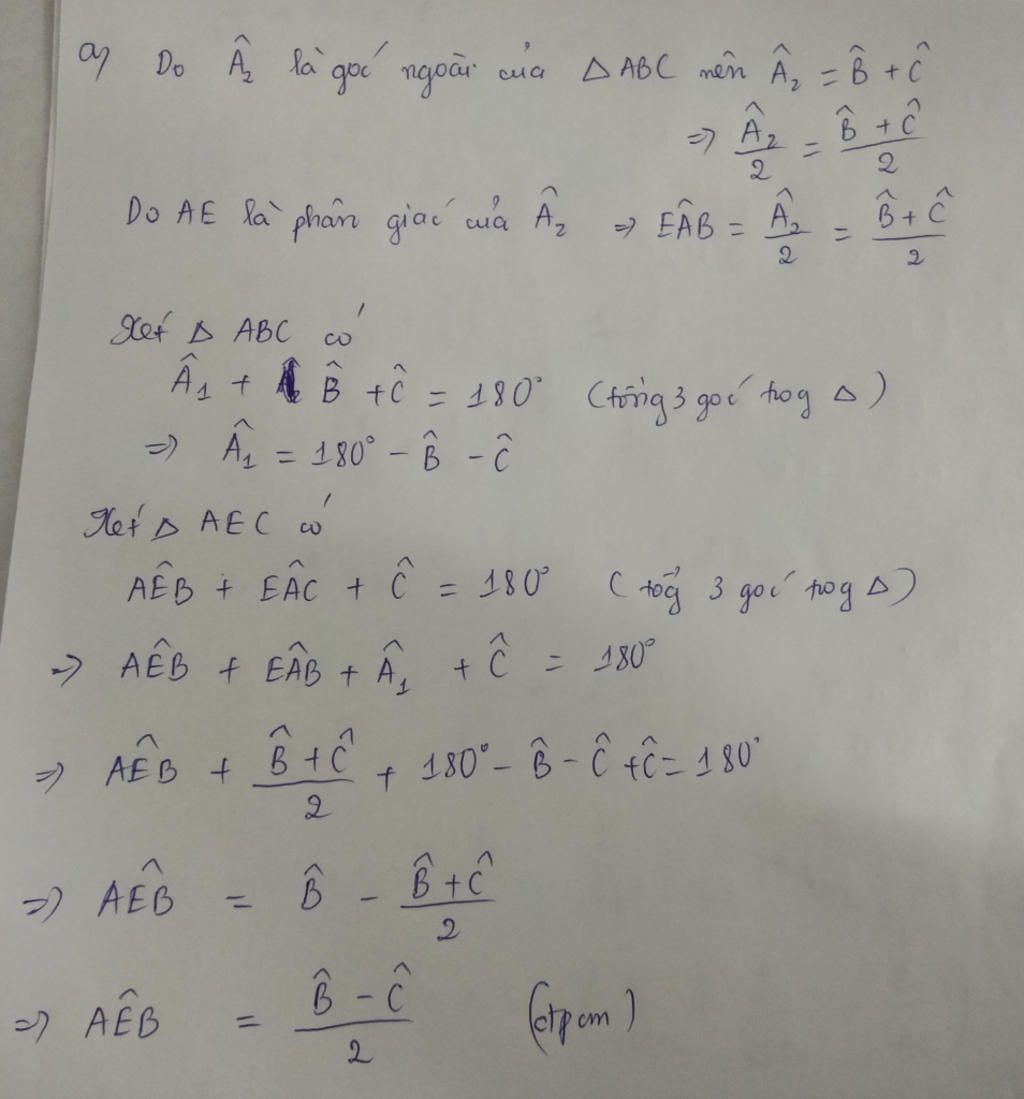 a) Do Â₂ là góc ngoài của △ABC nên Â₂ = B̂ + Ĉ
=> Â₂/2 = (B̂ + Ĉ)/2
Do AE là phân giác của Â₂ => EÂB = Â₂/2 = (B̂ + Ĉ)/2
Xét △ ABC có
Â₁ + B̂ + Ĉ = 180° (tổng 3 góc trog △)
=> Â₁ = 180° - B̂ - Ĉ
Xét △ AEC có
AÊB + EÂC + Ĉ = 180° (tổg 3 góc trog △)
=> AÊB + EÂB + Â₁ + Ĉ = 180°
=> AÊB + (B̂ + Ĉ)/2 + 180° - B̂ - Ĉ + Ĉ = 180°
=> AÊB = B̂ - (B̂ + Ĉ)/2
=> AÊB = (B̂ - Ĉ)/2 (đpcm)